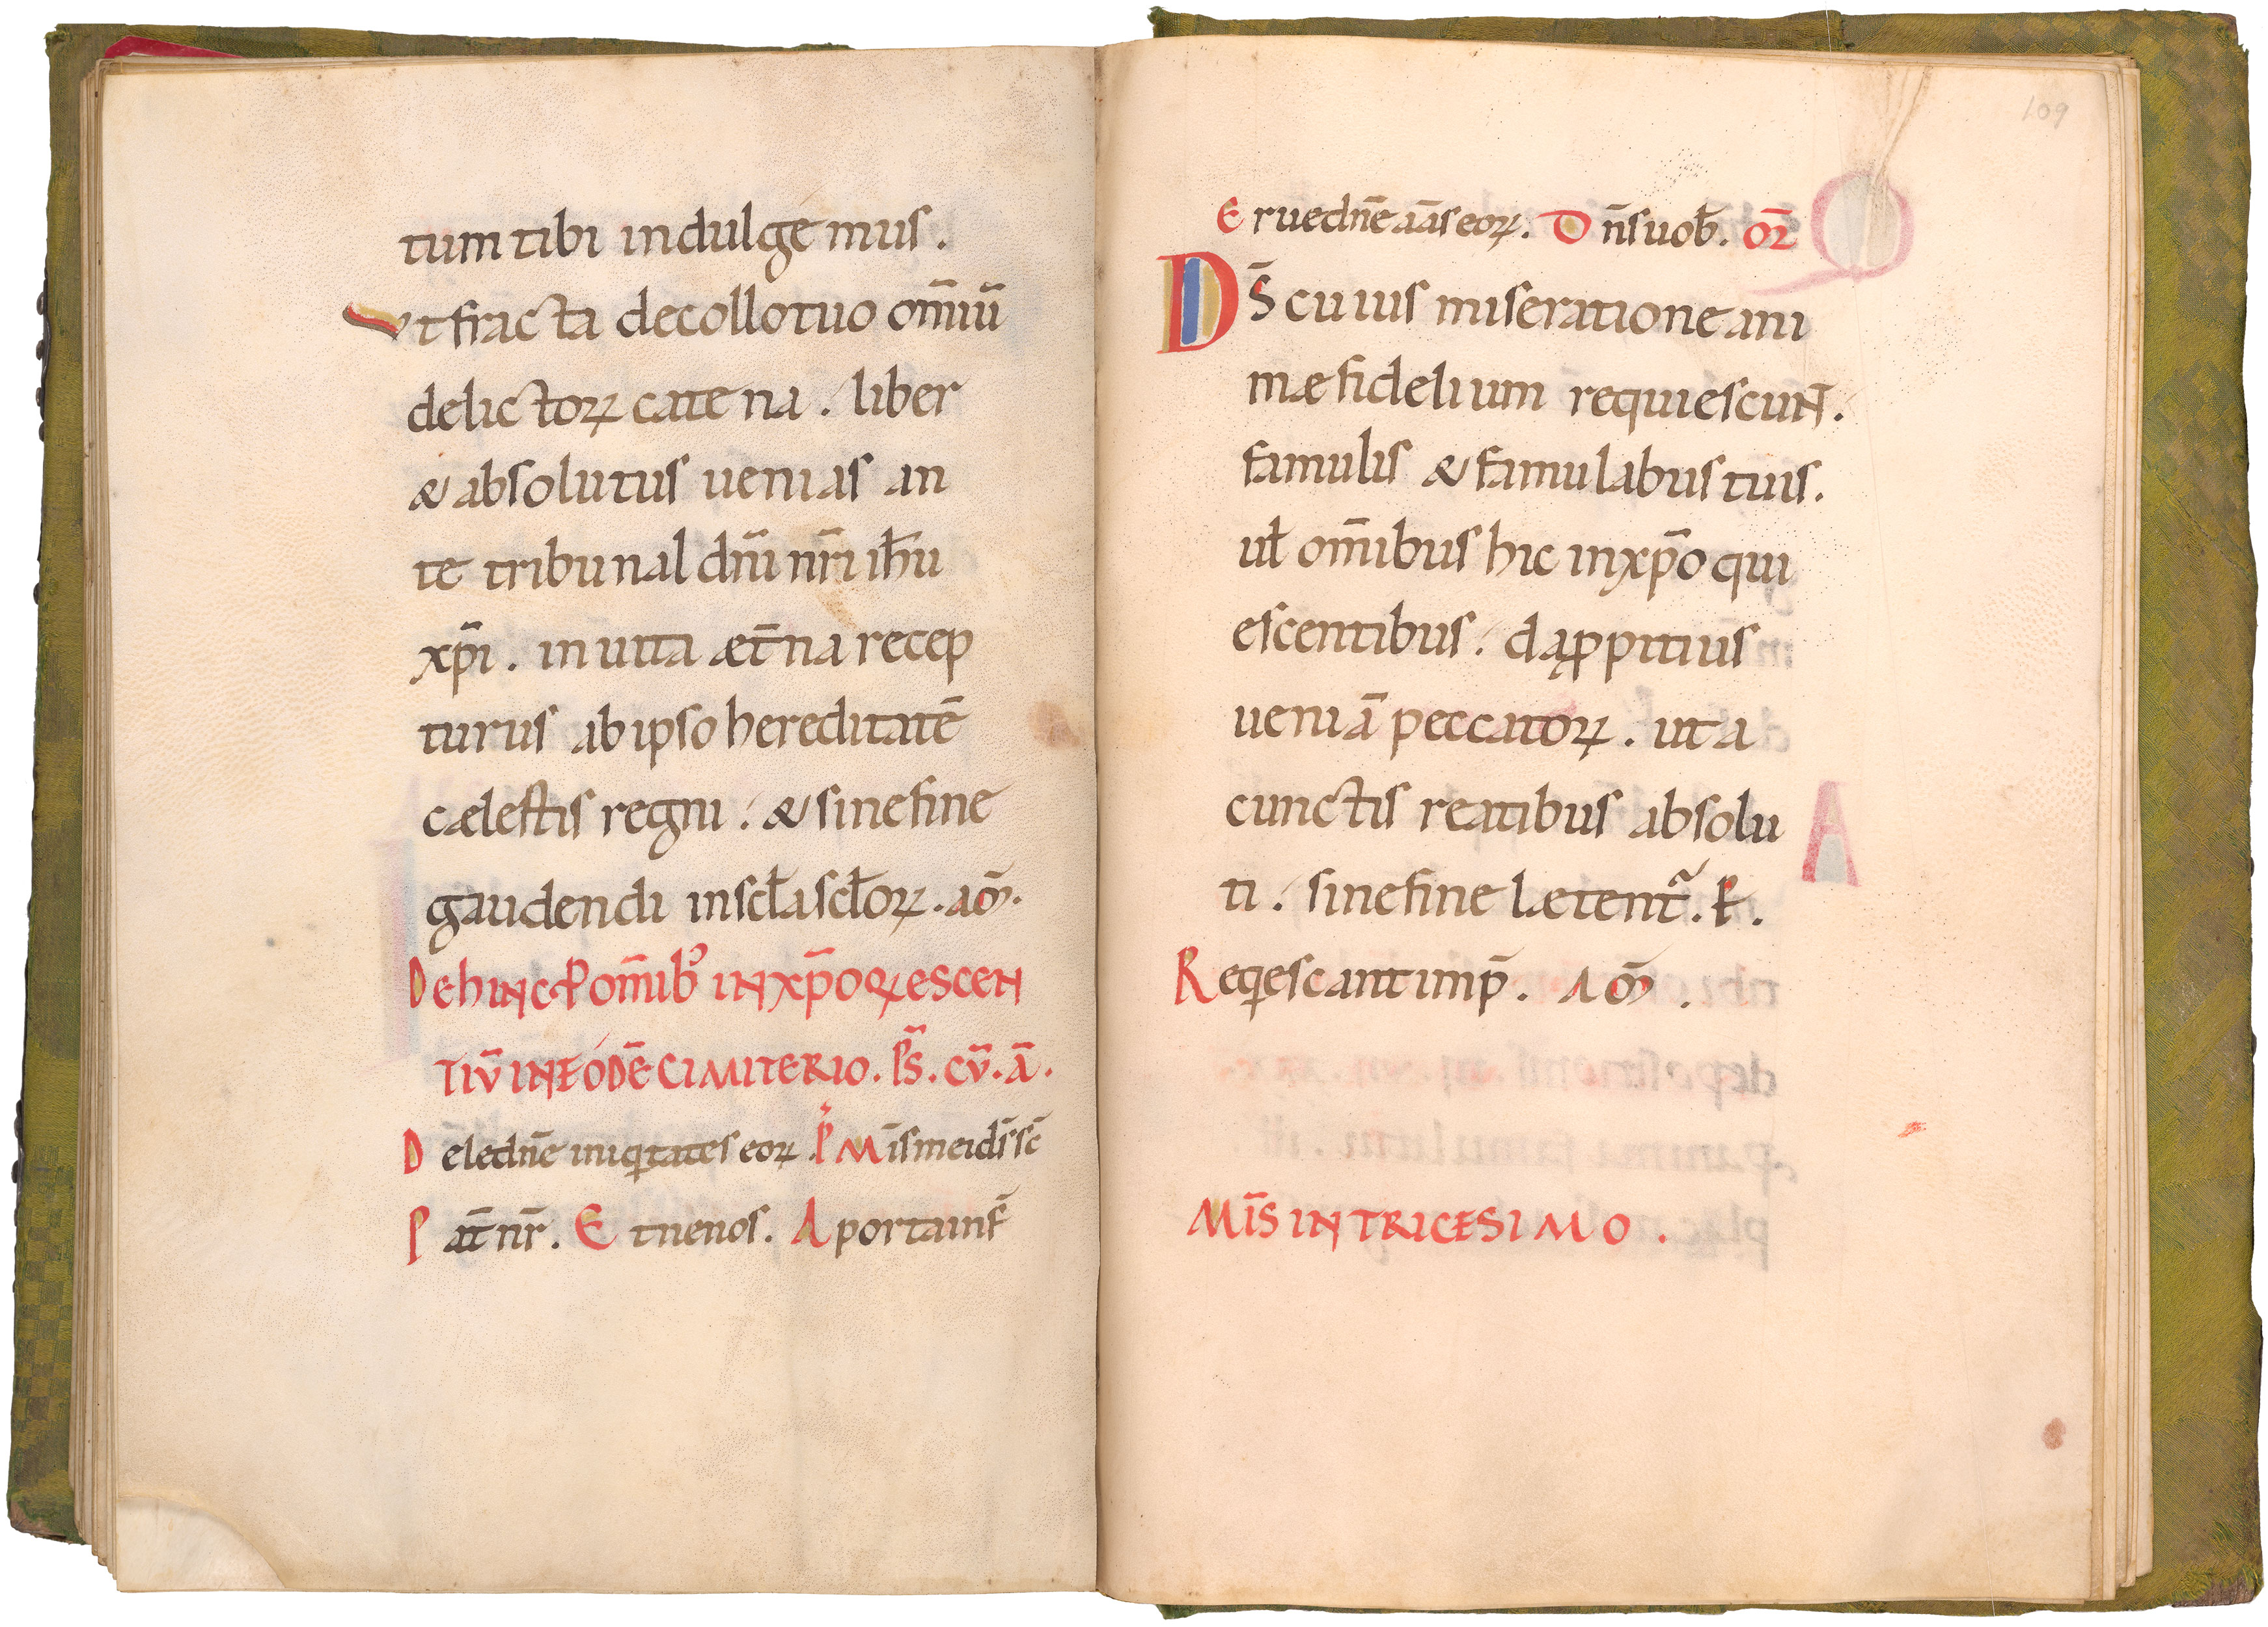 tum tibi indulgemus.
Ut fracta de collo tuo om̅iu̅
delictoꝝ catena. liber
& absolutus uenias an
te tribunal dn̅i nr̅i ih̅u
xp̅i. in uita æt̅na recep
turus ab ipso hereditate̅
cælestis regni. & sine fine
gaudendi in scl̅a scl̅oꝝ. am̅.
Dehinc ꝓ om̅ib; in xp̅o qescen
tiu̅ in eode̅ cimiterio. Ps̅. cu̅. a̅.
Dele dn̅e iniqitates eoꝝ. P Mis̅ mei ds̅ sc̅
Pat̅ nr̅. Et ne nos. A porta inf̅
Erue dn̅e a̅as eoꝝ. Dn̅s uob̅. Or̅
Ds̅ cuius miseratione ani
mæ fidelium requiescun̅t.
famulis & famulabus tuis.
ul̅ om̅ibus hic in xp̅o qui
escentibus. da ꝓpitius
uenia̅ peccatoꝝ. ut a
cunctis reatibus absolu
ti. sine fine lætent᷑. R.
Reqescant in p̅. Am̅.
Mis̅ in tricesimo.
109